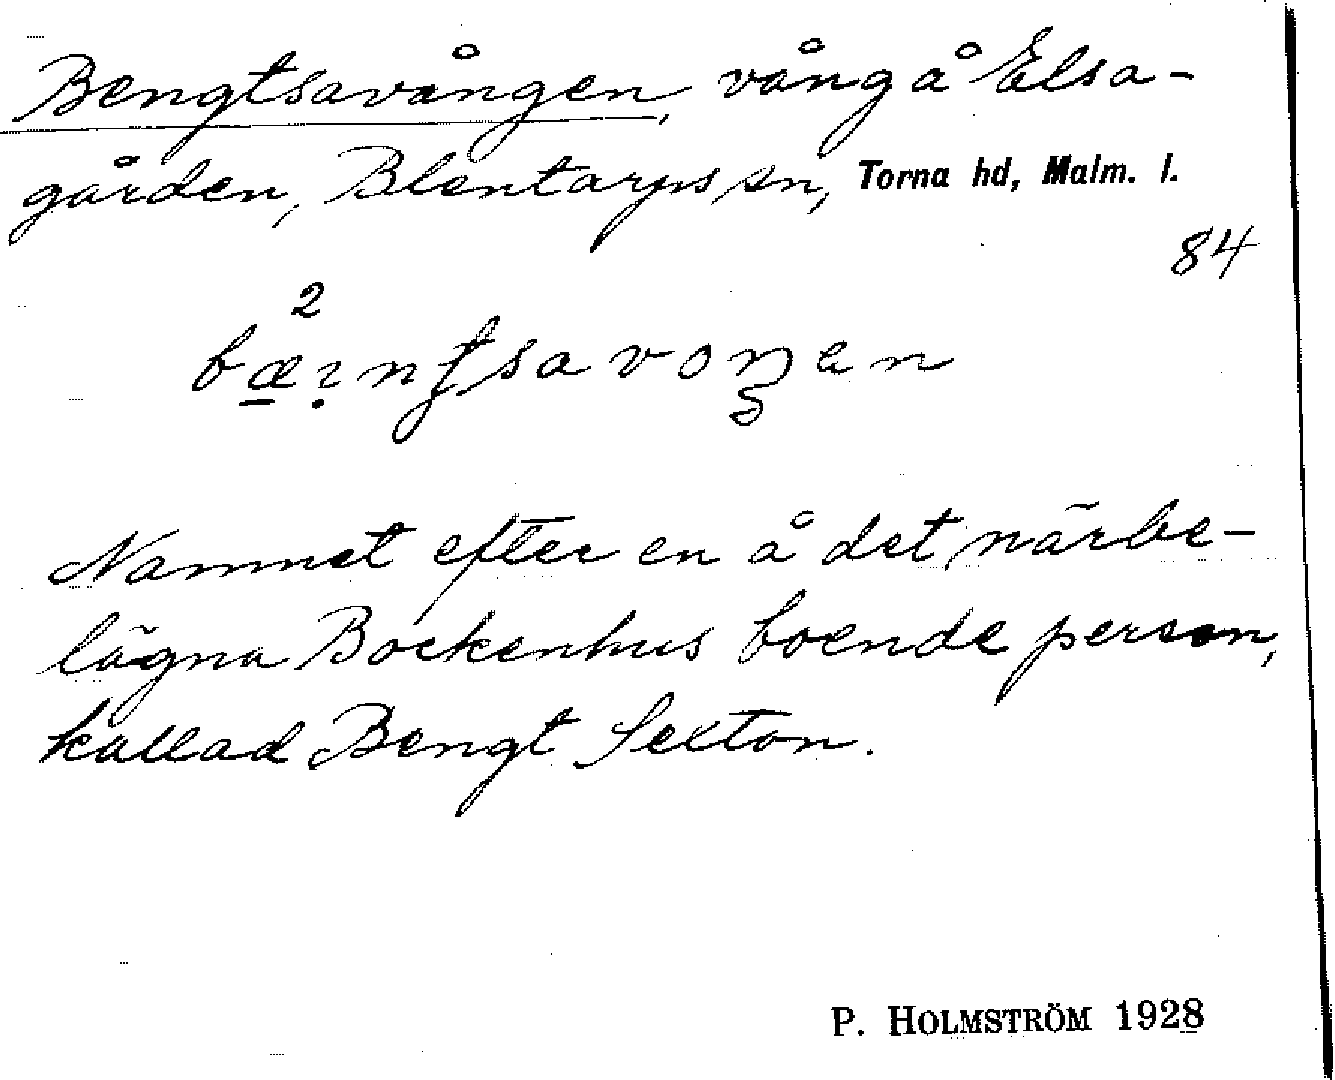 Bengtsavången, vång å Elsa-
gården, Blentarps sn, Torna hd, Malm. l.
84
2
bæıntsavoŋen
Namnet efter en å det närbe-
lägna Bockenhus boende person,
kallad Bengt Sexton.
P. HOLMSTRÖM 1928